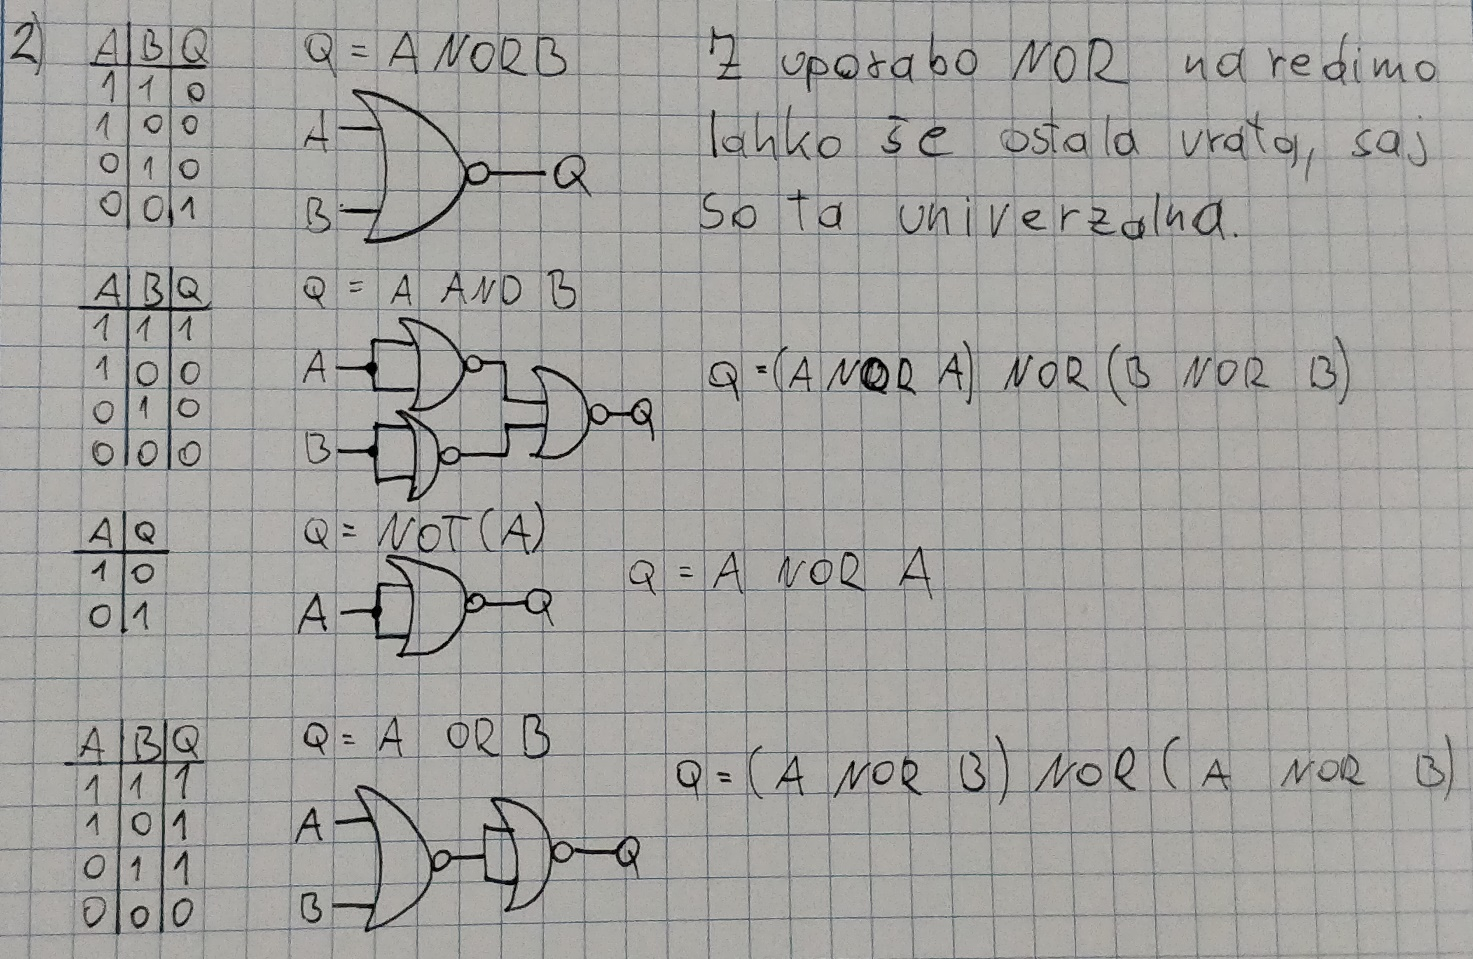 2)
A B Q
1 1 0
1 0 0
0 1 0
0 0 1
Q = A NOR B
A
B
Q
Z uporabo NOR naredimo
lahko še ostala vrata, saj
so ta univerzalna.
A B Q
1 1 1
1 0 0
0 1 0
0 0 0
Q = A AND B
A
B
Q
Q = (A NOR A) NOR (B NOR B)
A Q
1 0
0 1
Q = NOT(A)
A
Q
Q = A NOR A
A B Q
1 1 1
1 0 1
0 1 1
0 0 0
Q = A OR B
A
B
Q
Q = (A NOR B) NOR (A NOR B)